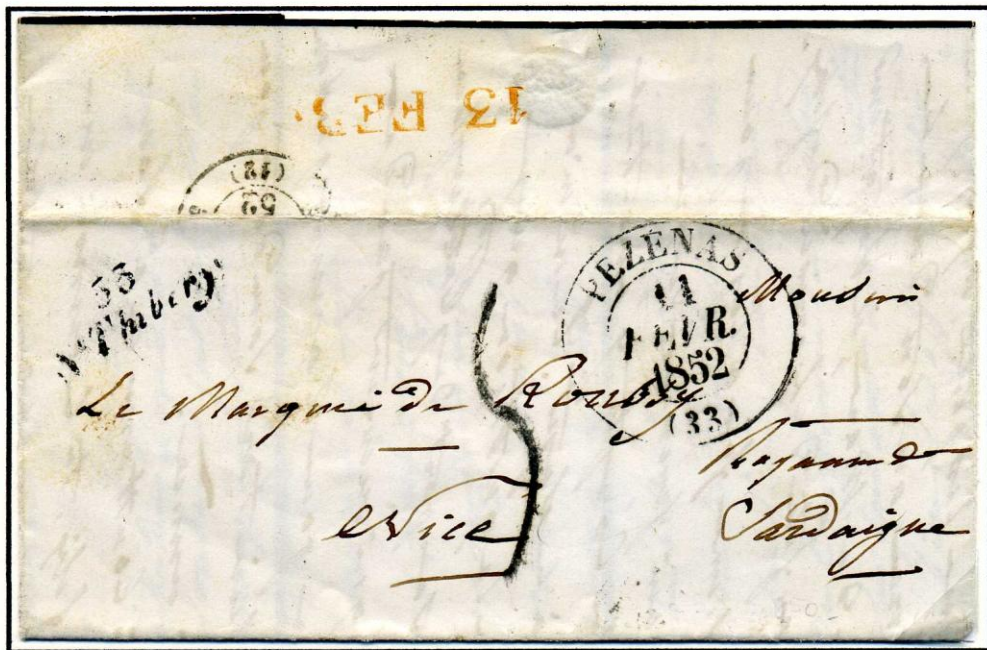 13 FEB.
(12)
52
33
St Thibery
PEZENAS
11
FEVR.
1852
(33)
Monsieur
Le Marquis de
Nice
Royaume de
Sardaigne
5